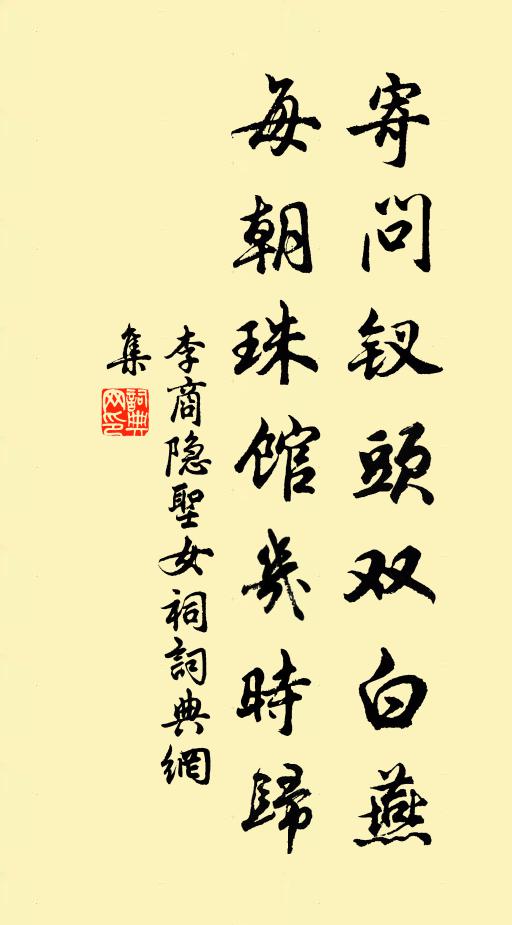 寄问钗頭双白燕
每朝珠馆幾時歸
李商隐聖女祠詞典網
集
詞典
网印